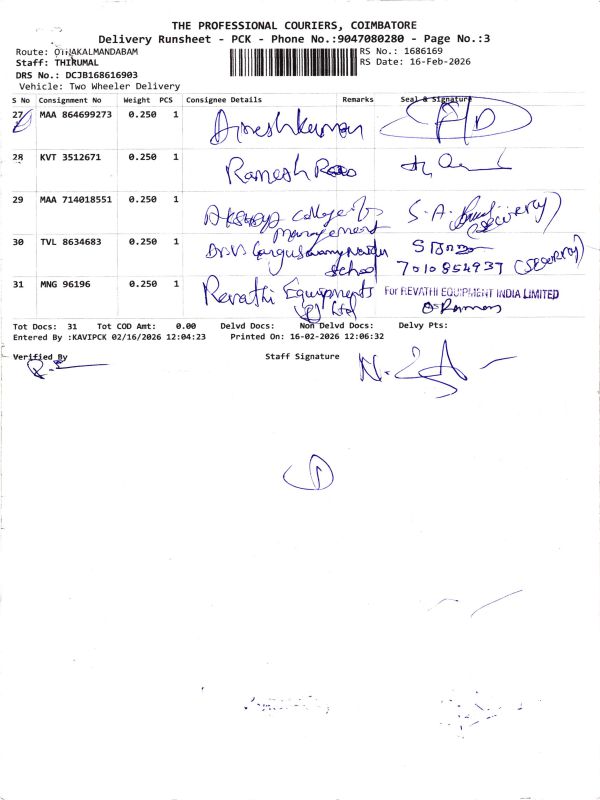 THE PROFESSIONAL COURIERS, COIMBATORE
Delivery Runsheet - PCK - Phone No.:9047080280 - Page No.:3
Route: OTHAKALMANDABAM RS No.: 1686169
Staff: THIRUMAL RS Date: 16-Feb-2026
DRS No.: DCJB168616903
Vehicle: Two Wheeler Delivery
S No Consignment No Weight PCS Consignee Details Remarks Seal & Signature
27 MAA 864699273 0.250 1 Dineshkumar
28 KVT 3512671 0.250 1 Ramesh Rao
29 MAA 714018551 0.250 1 Akshaya college of management S.A. (Security)
30 TVL 8634683 0.250 1 school 7010854937 (Security)
31 MNG 96196 0.250 1 Revathi Equipments (P) Ltd For REVATHI EQUIPMENT INDIA LIMITED
Tot Docs: 31 Tot COD Amt: 0.00 Delvd Docs: Non Delvd Docs: Delvy Pts:
Entered By :KAVIPCK 02/16/2026 12:04:23 Printed On: 16-02-2026 12:06:32
Verified By Staff Signature